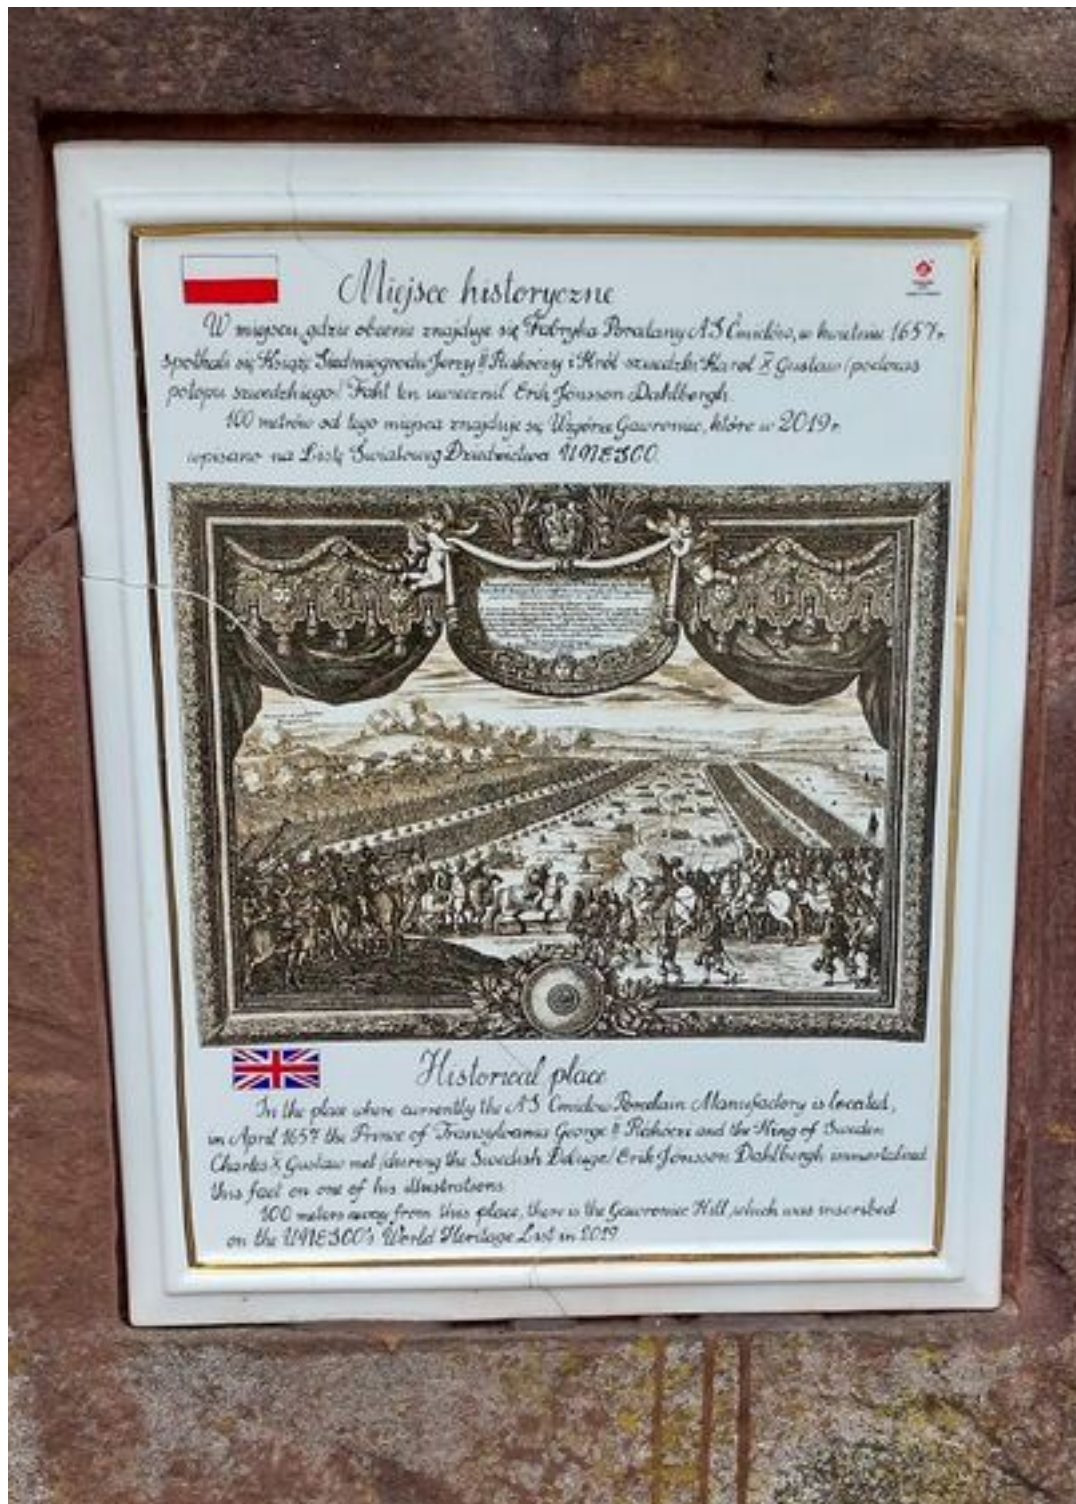 Miejsce historyczne
W miejscu, gdzie obecnie znajduje się Fabryka Porcelany AS Ćmielów, w kwietniu 1657 r.
spotkali się Książę Siedmiogrodu Jerzy II Rakoczy i Król szwedzki Karol X Gustaw /podczas
potopu szwedzkiego/ Fakt ten uwiecznił Erik Jönsson Dahlbergh.
100 metrów od tego miejsca znajduje się Wzgórze Gawroniec, które w 2019 r.
wpisano na Listę Światowego Dziedzictwa UNESCO.
Historical place
In the place where currently the AS Cmielow Porcelain Manufactory is located,
in April 1657 the Prince of Transylvania George II Rakoczi and the King of Sweden
Charles X Gustaw met /during the Swedish Deluge/ Erik Jonsson Dahlbergh immortalised
this fact on one of his illustrations.
100 meters away from this place, there is the Gawroniec Hill, which was inscribed
on the UNESCO's World Heritage List in 2019